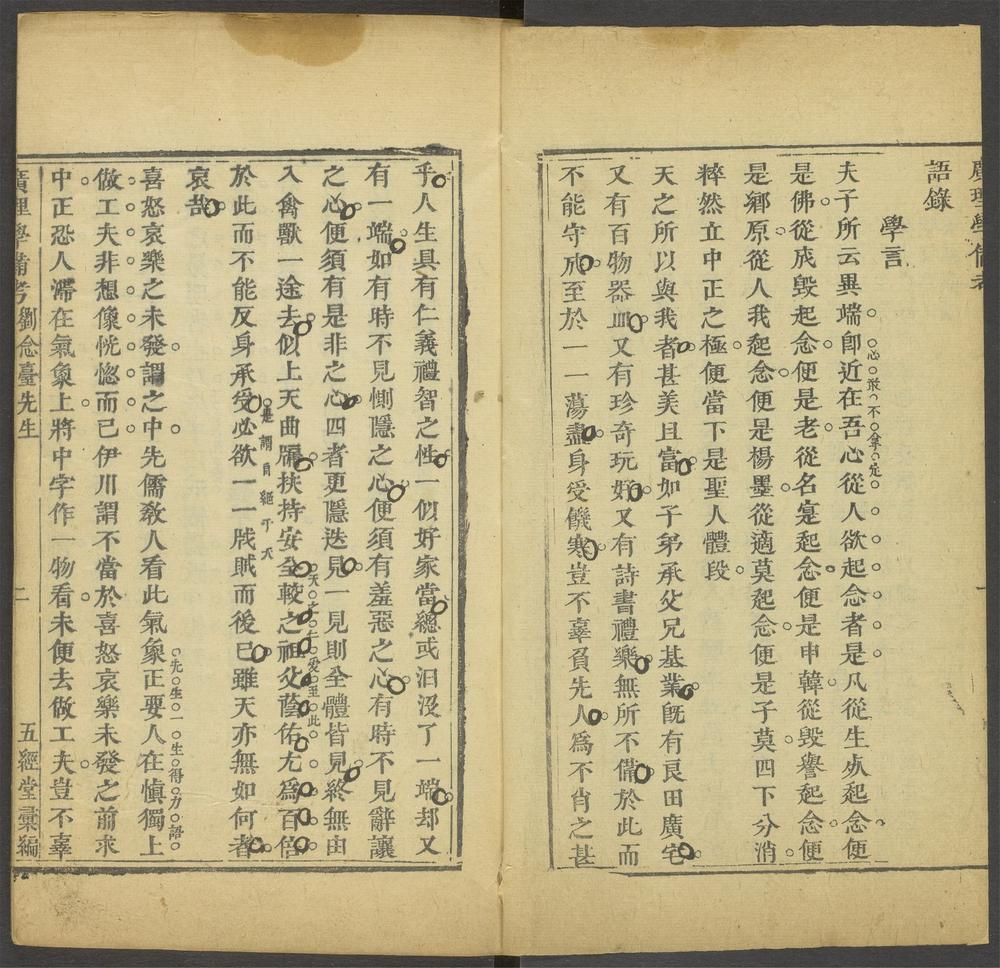 廣理學備考
語錄
學言
夫子所云異端卽近在吾心從人欲起念者是凡從生死起念便
心㪚不拿定
是佛從成毀起念便是老從名寔起念便是申韓從毀譽起念便
是鄉原從人我起念便是楊墨從適莫起念便是子莫四下分消
粹然立中正之極便當下是聖人體段
天之所以與我者甚美且富如子弟承父兄基業旣有良田廣宅
又有百物器皿又有珍奇玩好又有詩書禮樂無所不備於此而
不能守成至於一一蕩盡身受饑寒豈不辜負先人為不肖之甚
乎人生具有仁義禮智之性一似好家當纔或汩沒了一端却又
有一端如有時不見惻隱之心便須有羞惡之心有時不見辭讓
之心便須有是非之心四者更隱迭見一見則全體皆見終無由
入禽獸一途去似上天曲牖挾持安全較之祖父蔭佑尤為百倍
天之仁愛至此
於此而不能反身承受必欲一一戕賊而後已雖天亦無如何者
是謂自絕于天
哀哉
喜怒哀樂之未發謂之中先儒教人看此氣象正要人在慎獨上
先生一生得力語
做工夫非想像恍惚而已伊川謂不當於喜怒哀樂未發之前求
中正恐人滯在氣象上將中字作一物看未便去做工夫豈不辜
廣理學備考 劉念臺先生 二 五經堂彙編